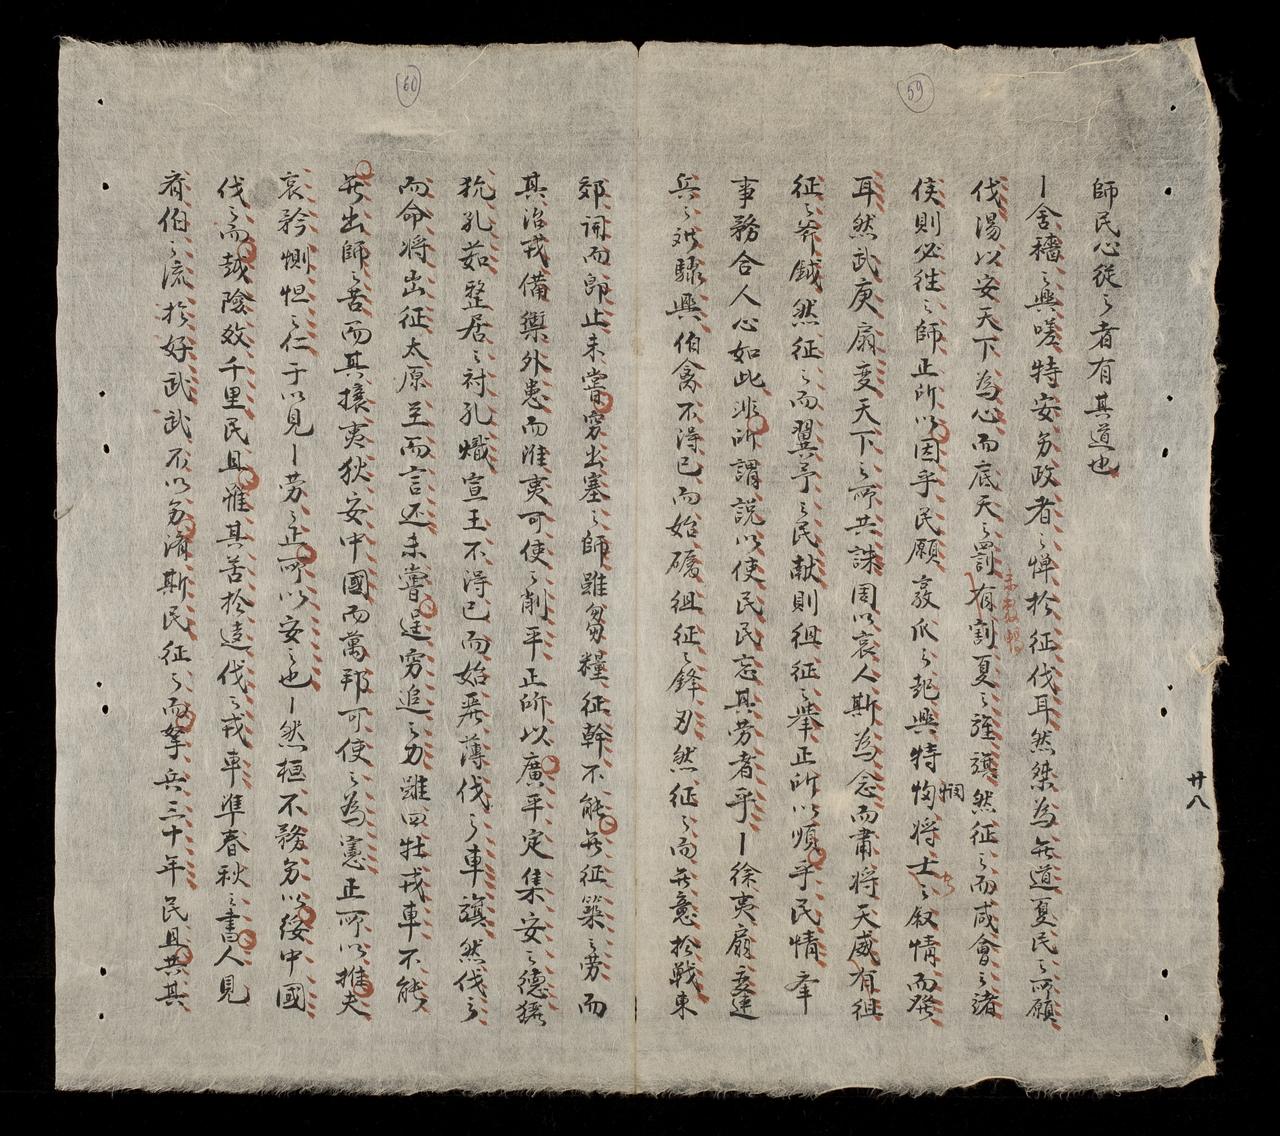 59
師民心從々者有其道也
丨舍穡之興嗟特安於政者之憚於征伐耳然桀為無道夏民之所願
伐湯以安天下為心而底天之罰有割夏之旌旗然征之而咸會之諸
侯則必徃之師正所以因乎民願亥瓜之起興特恂将士之叙情而發
耳然武庚扇变天下之所共誅周以哀人斯為念而肅将天威有徂
征之斧鉞然征之而翼予之民献則徂征之舉正所以順乎民情 奉
事務合人心如此非所謂說以使民民忘其劳者乎丨徐夷扇变建
兵之 驛興伯禽不淂已而始礪徂征之鋒刃然征之而無意於戦東
廿八
60
郊開而即止未嘗窮出塞之師雖芻糧征幹不能無征築之劳而
其治戎備禦外患而淮夷可使之削平正所以廣平定集安之德玁
狁孔茹整居之討孔熾宣王不淂已而始𠫭薄伐之車旗然伐之
而命将出征太原至而言还未嘗逞窮追之力雖四牡戎車不能
無出師之苦而其攘夷狄安中國而萬邦可使之為憲正所以推夫
哀矜惻怛之仁于以見丨劳之正所以安之也丨然桓不務於以綏中國
伐之而越險效千里民且惟其苦於遠伐之戎車準春秋之書人見
斉伯之流於好武武不以於濟斯民征之而拏兵三十年民且其其